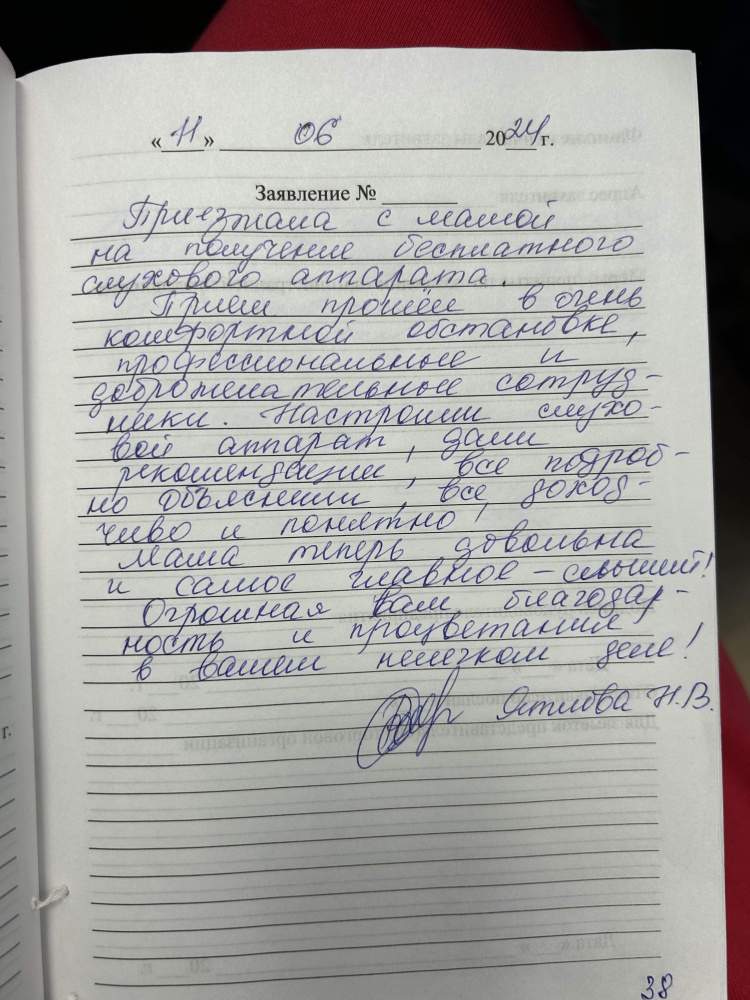 «11» 06 2024 г.
Заявление № ______
Приезжала с мамой
на получение бесплатного
слухового аппарата.
Приём прошёл в очень
комфортной обстановке,
профессиональные и
доброжелательные сотруд-
ники. Настроили слухо-
вой аппарат, дали
рекомендации, все подроб-
но объяснили, все доход-
чиво и понятно!
Мама теперь довольна
и самое главное - слышит!
Огромная вам благодар-
ность и процветания
в вашем нелегком деле!
Н.В.
38